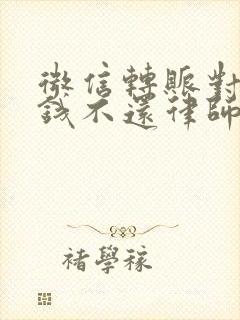 微信轉賬對
錢不還律師
褚學稼